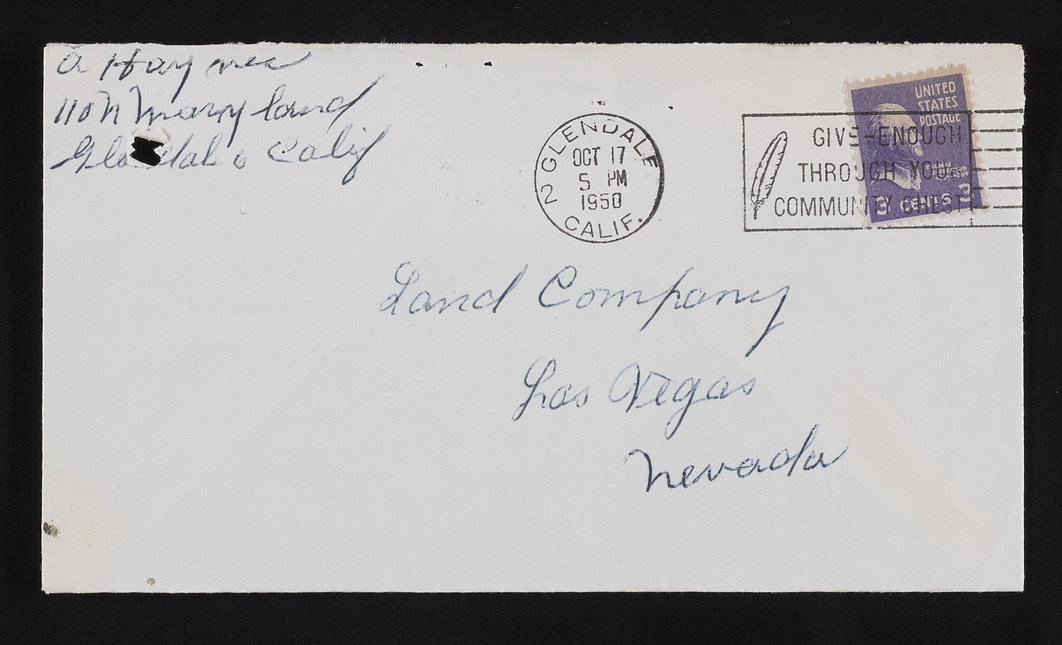 A Haymie
110 N Maryland
Glendale Calif
GLENDALE
OCT 17
5 PM
1950
2
CALIF.
GIVE-ENOUGH
THROUGH YOUR
COMMUNITY CHEST
UNITED
STATES
POSTAGE
3 CENTS 3
Land Company
Las Vegas
Nevada